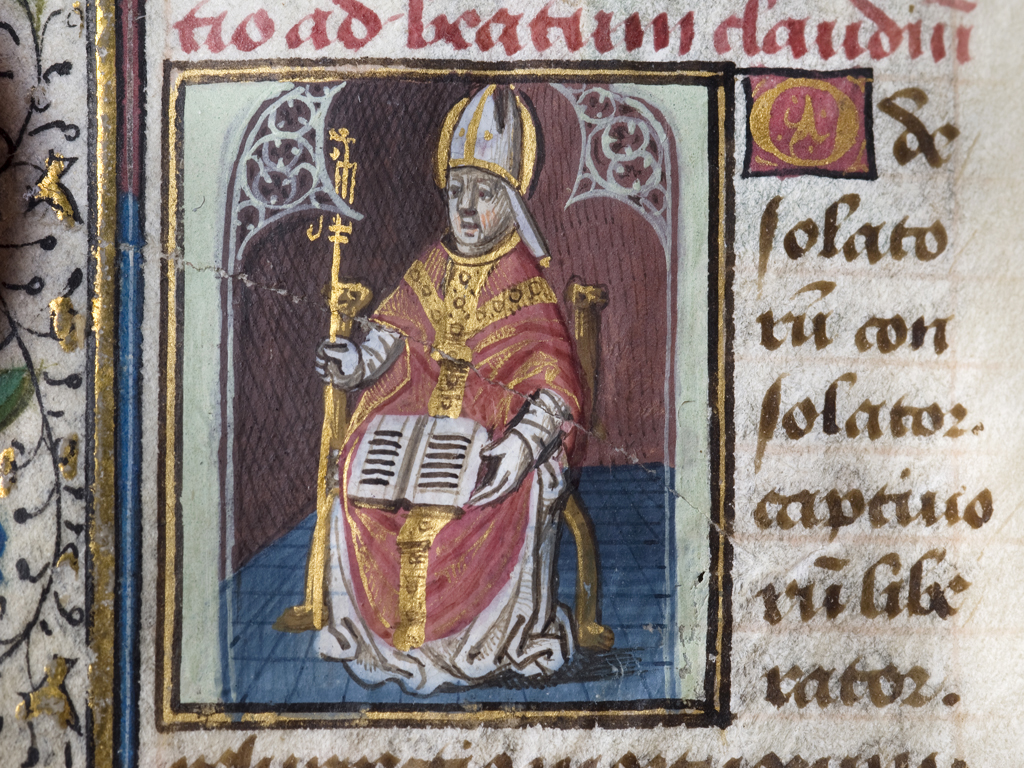 tio ad beatum claudiū
O de
solato
rū con
solator.
captiuo
rū libe
rator.